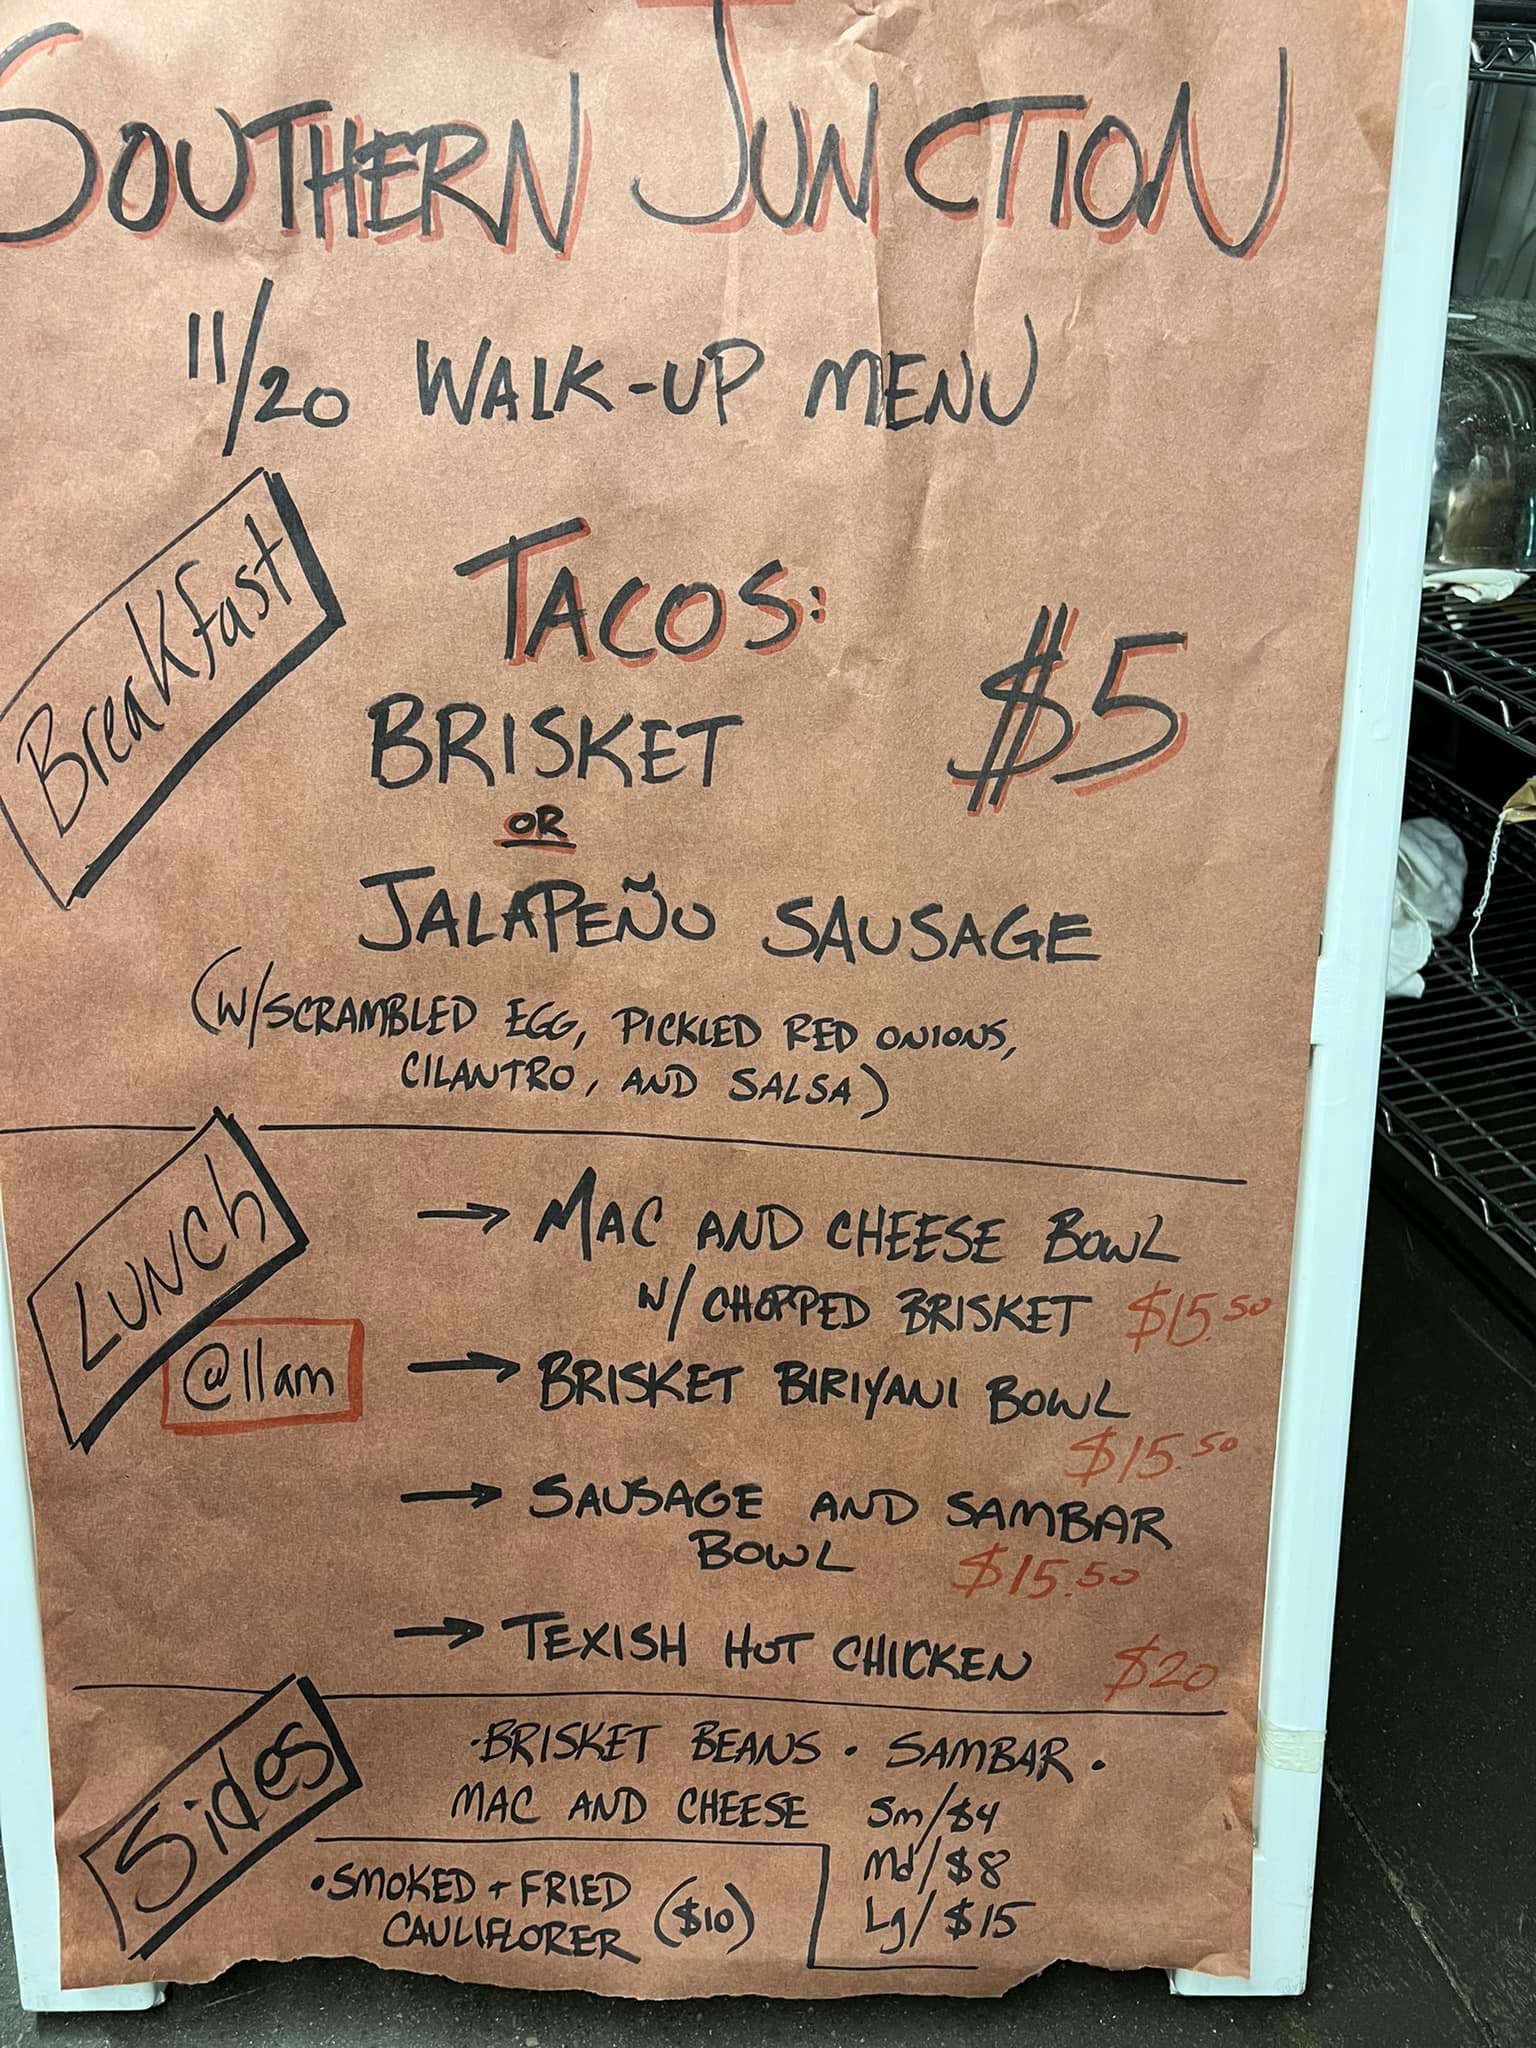 SOUTHERN JUNCTION
11/20 WALK-UP MENU
Breakfast
TACOS:
$5
BRISKET
OR
JALAPEÑO SAUSAGE
(W/SCRAMBLED EGG, PICKLED RED ONIONS,
CILANTRO, AND SALSA)
Lunch
@11am
→ MAC AND CHEESE BOWL
W/ CHOPPED BRISKET $15.50
→ BRISKET BIRIYANI BOWL
$15.50
→ SAUSAGE AND SAMBAR
BOWL $15.50
→ TEXISH HOT CHICKEN $20
Sides
·BRISKET BEANS · SAMBAR ·
MAC AND CHEESE
Sm/$4
Md/$8
Lg/$15
·SMOKED + FRIED
CAULIFLORER ($10)